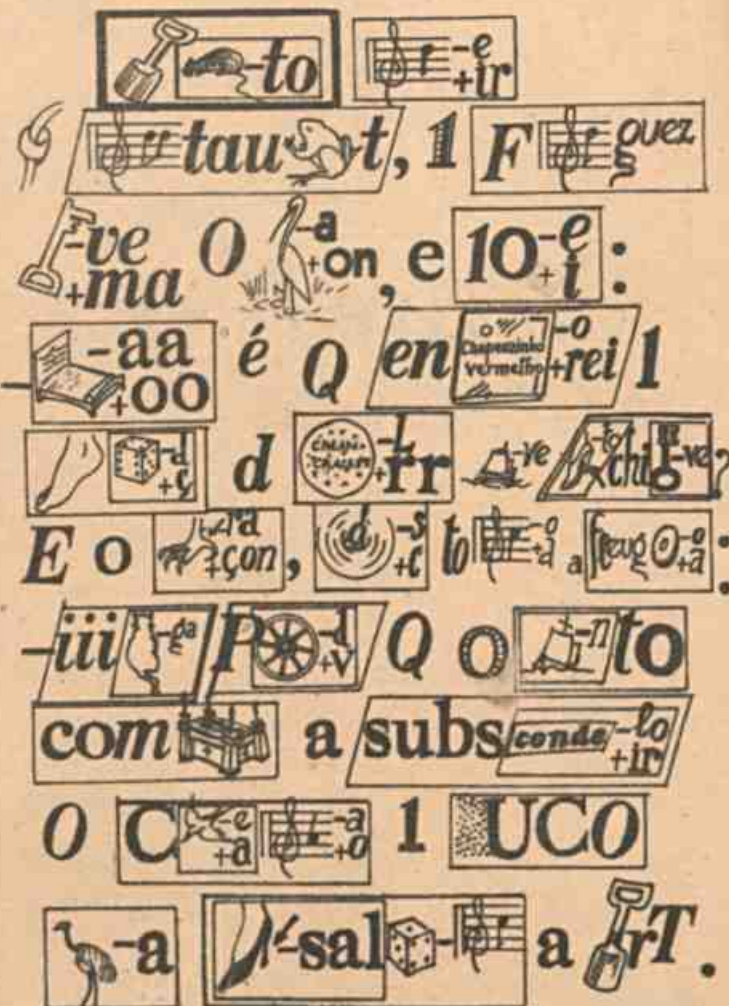 -to -e +ir
tau t, 1 F guez
-ve +ma O -a +on, e 10 -e +i :
-aa +oo é Q en Chapeuzinho vermelho -o +rei 1
-d +ç d -L +rr -ve -to chi g -ve ?
E o +çon, d -s +c to -o +a a -o +a :
-iii -ga P -d +v Q O -n to
com a subs conde -lo +ir
O C -e +a -a +o 1 UCO
-a -sal - a rT.